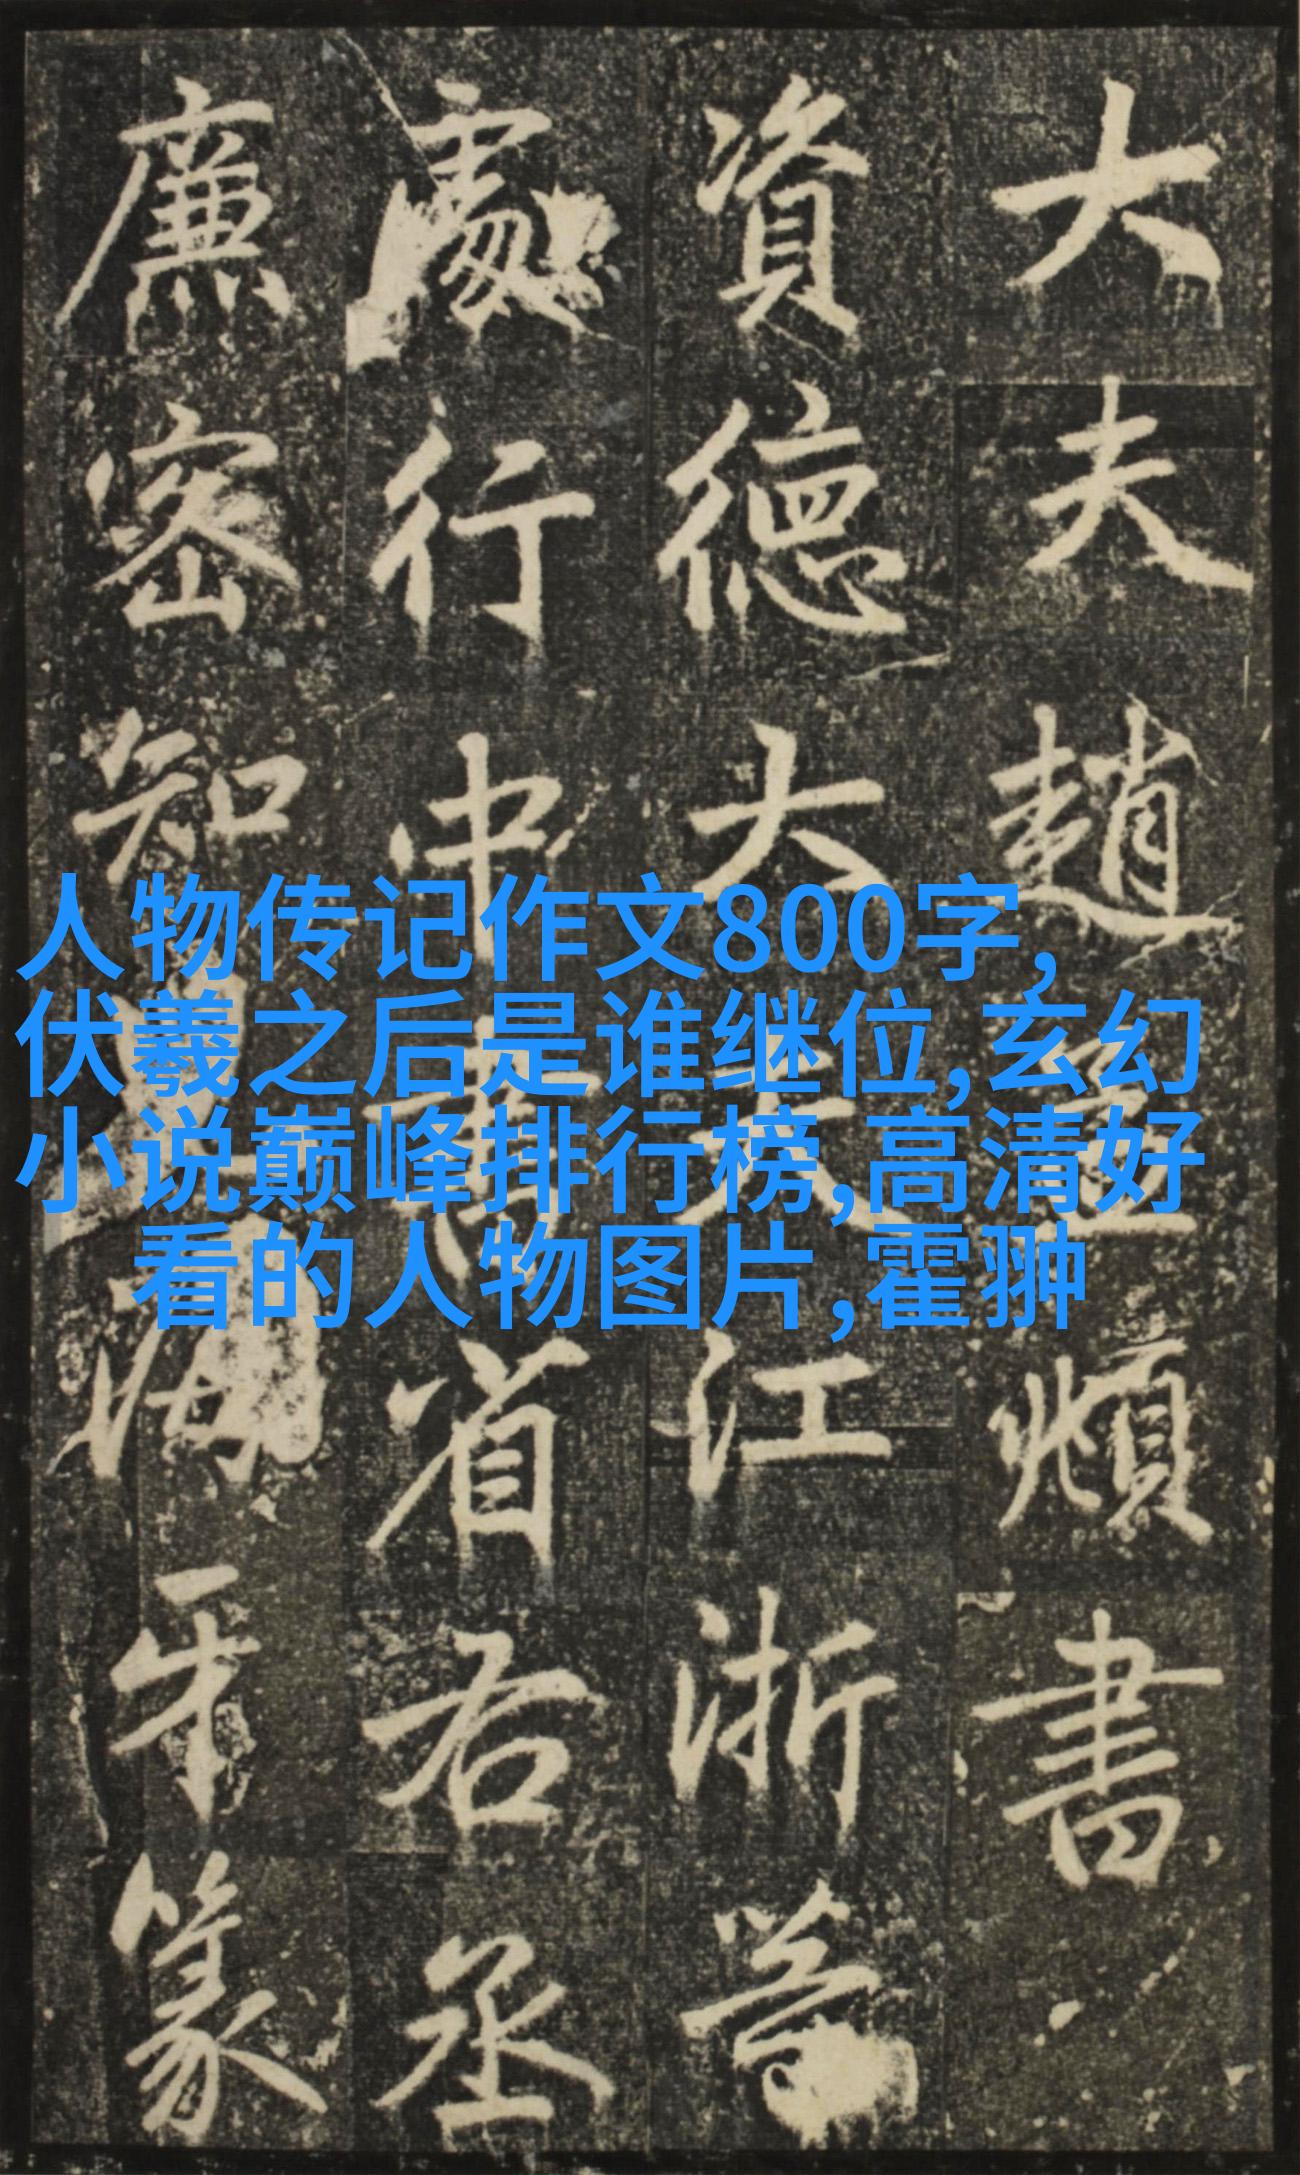 人物传记作文800字,
伏羲之后是谁继位,玄幻
小说巅峰排行榜,高清好
看的人物图片,霍翀
大夫趙孟頫書
資德大夫江浙等
處行中書省右丞
廉密知海牙篆